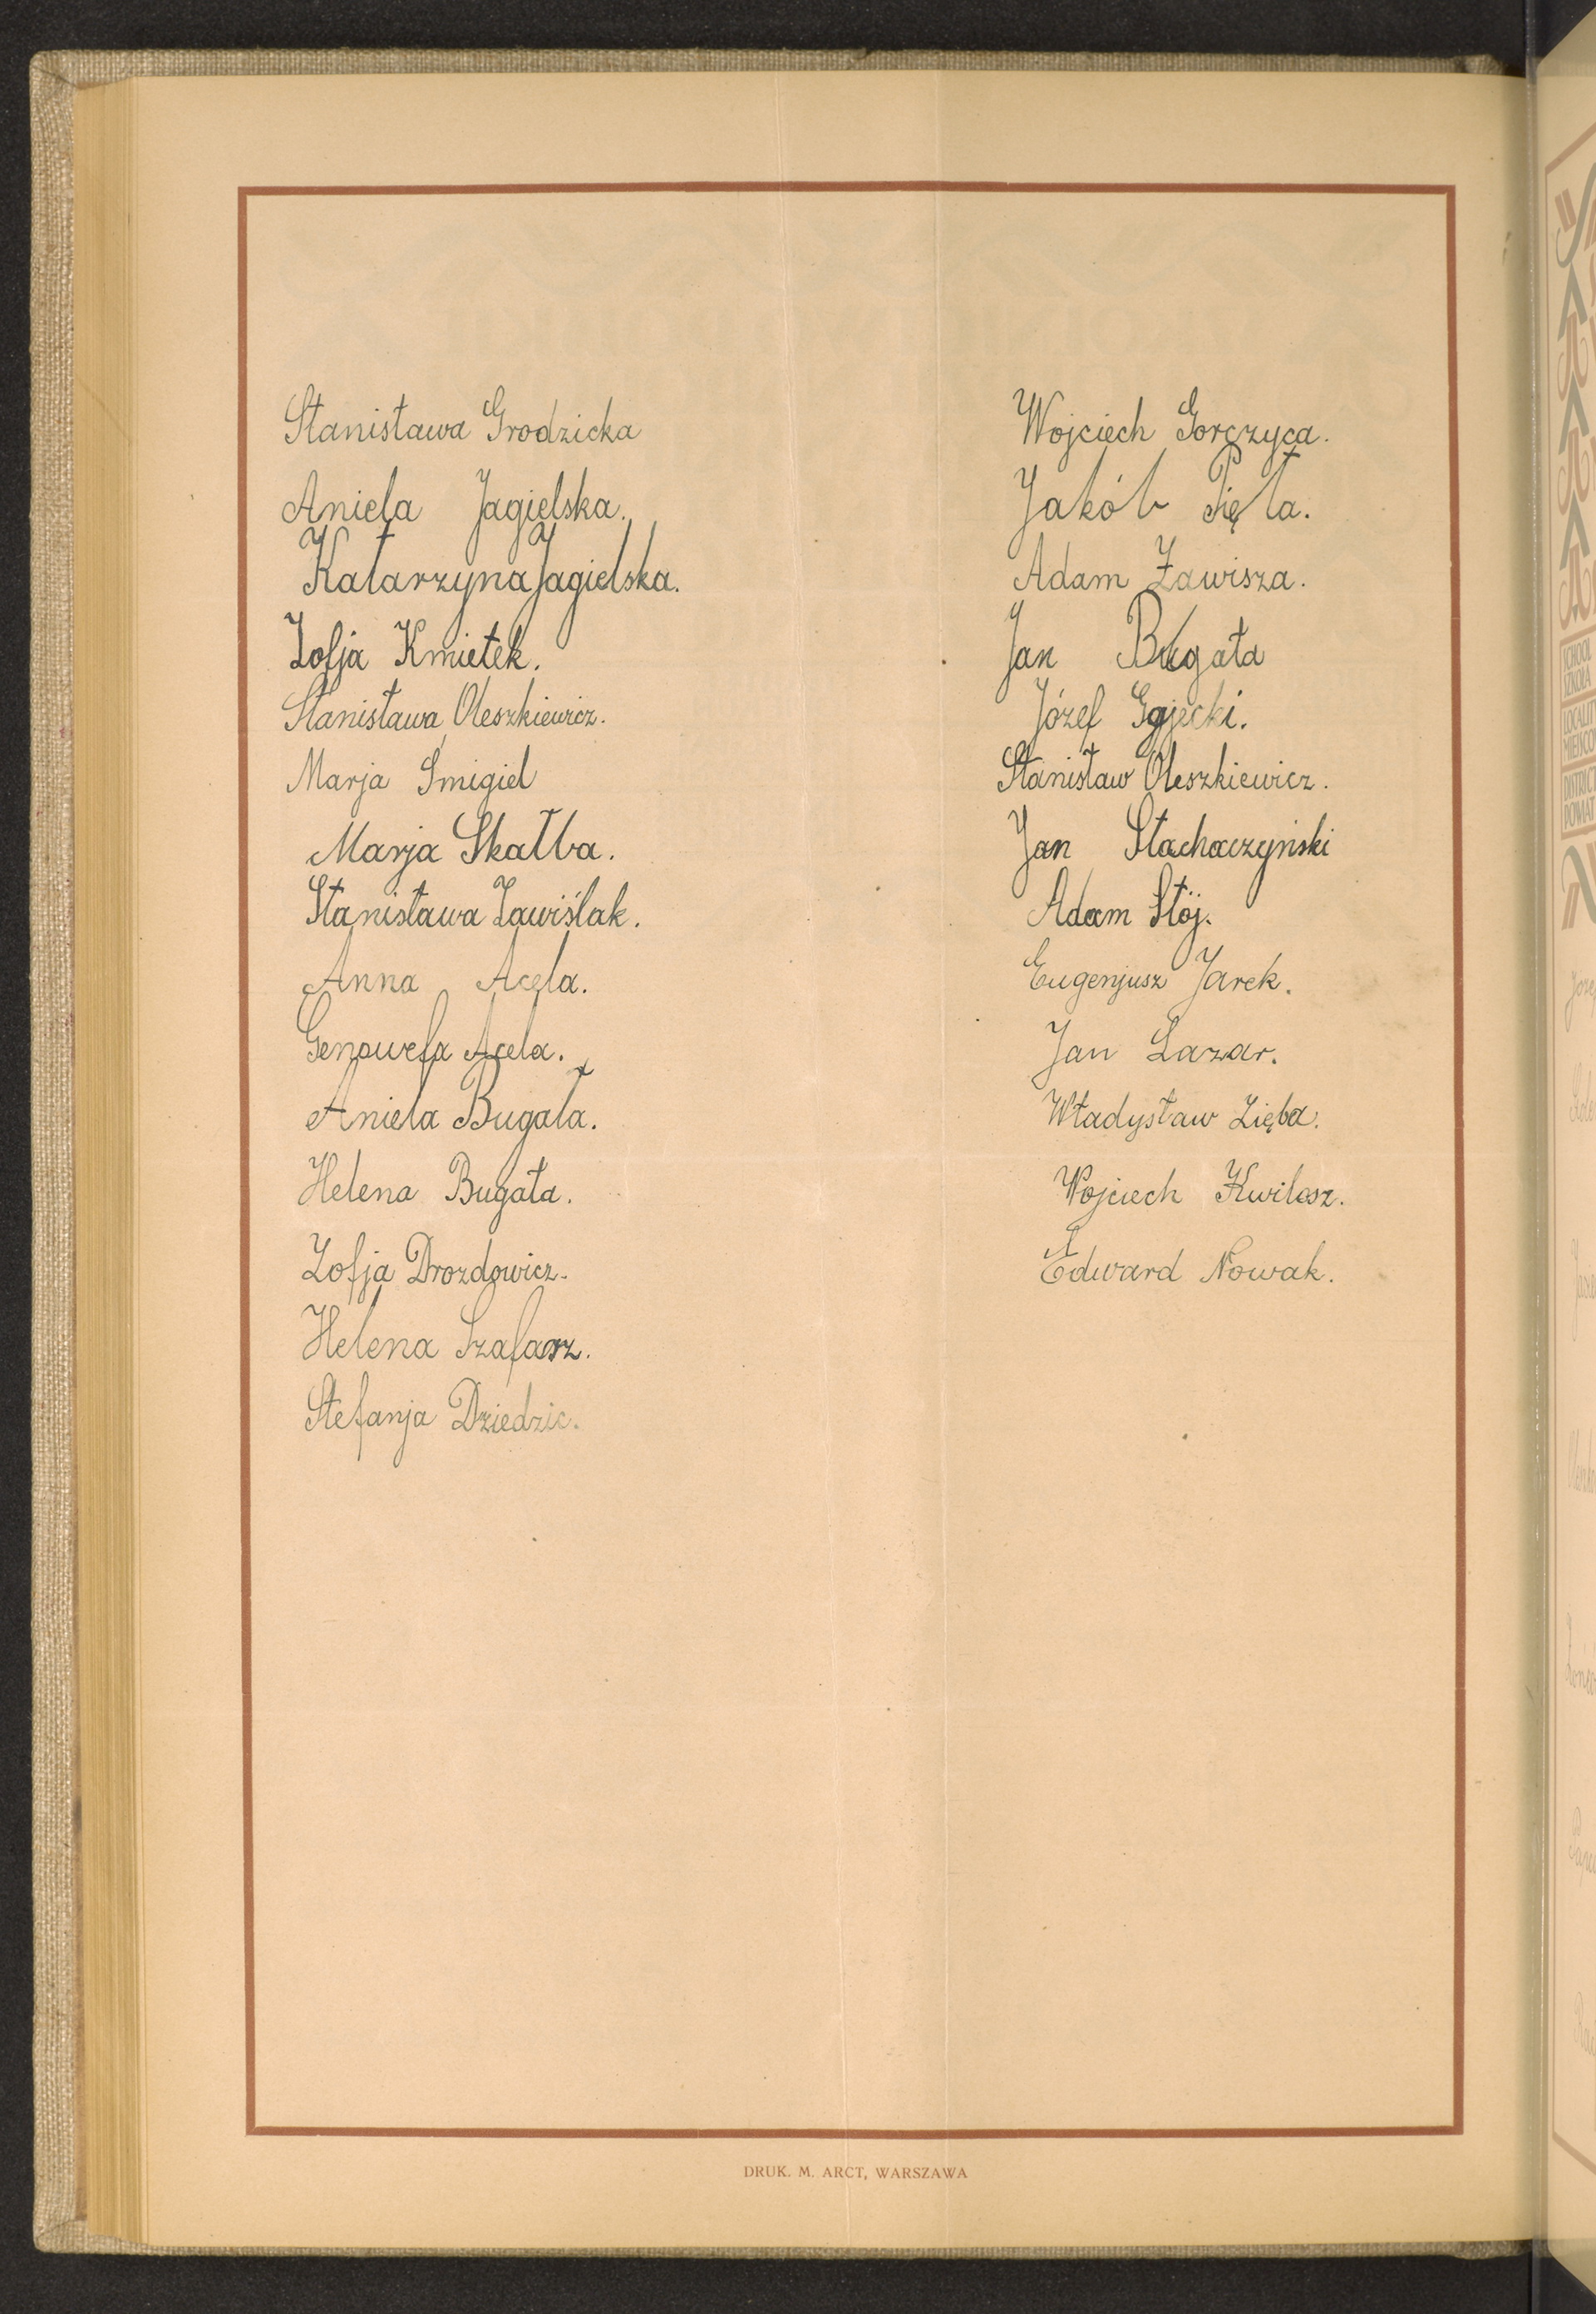 Stanisława Grodzicka
Aniela Jagielska.
Katarzyna Jagielska.
Zofja Kmietek.
Stanisława Oleszkiewicz.
Marja Smigiel
Marja Skałba.
Stanisława Zawiślak.
Anna Acela.
Genowefa Acela.
Aniela Bugała.
Helena Bugała.
Zofja Drozdowicz.
Helena Szafarz.
Stefanja Dziedzic.
Wojciech Gorczyca.
Jakób Pięta.
Adam Zawisza.
Jan Bugała
Józef
Stanisław Oleszkiewicz.
Jan Stachaczyński
Adam Stój.
Eugenjusz Jarek.
Jan Lazar.
Władysław Zięba.
Wojciech Kwilosz.
Edward Nowak.
DRUK. M. ARCT, WARSZAWA
SCHOOL
SZKOŁA